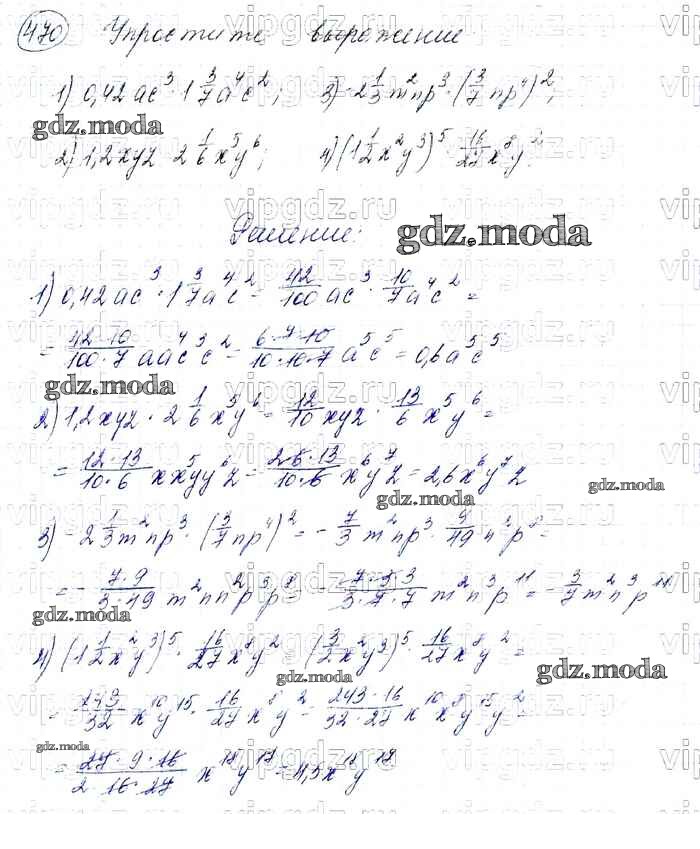 470 Упростите выражение
1) 0,42ac³·1 3/7 a⁴c²; 3) -2 1/3 m²np³·(3/7 np⁴)²;
gdz.moda
2) 1,2xyz·2 1/6 x⁵y⁶; 4) (1 1/2 x²y³)⁵·16/27 x⁸y².
Решение:
gdz.moda
1) 0,42ac³·1 3/7 a⁴c² = 42/100 ac³·10/7 a⁴c² =
= 42·10/100·7 aa⁴c³c² = 6·7·10/10·10·7 a⁵c⁵ = 0,6a⁵c⁵
gdz.moda
2) 1,2xyz·2 1/6 x⁵y⁶ = 12/10 xyz·13/6 x⁵y⁶ =
= 12·13/10·6 xx⁵yy⁶z = 2·6·13/10·6 x⁶y⁷z = 2,6x⁶y⁷z
gdz.moda
gdz.moda
3) -2 1/3 m²np³·(3/7 np⁴)² = -7/3 m²np³·9/49 n²p⁸ =
= -7·9/3·49 m²nn²p³p⁸ = -7·3·3/3·7·7 m²n³p¹¹ = -3/7 m²n³p¹¹
gdz.moda
4) (1 1/2 x²y³)⁵·16/27 x⁸y² = (3/2 x²y³)⁵·16/27 x⁸y² =
gdz.moda
= 243/32 x¹⁰y¹⁵·16/27 x⁸y² = 243·16/32·27 x¹⁰x⁸y¹⁵y² =
gdz.moda
= 27·9·16/2·16·27 x¹⁸y¹⁷ = 4,5x¹⁸y¹⁷
vipgdz.ru